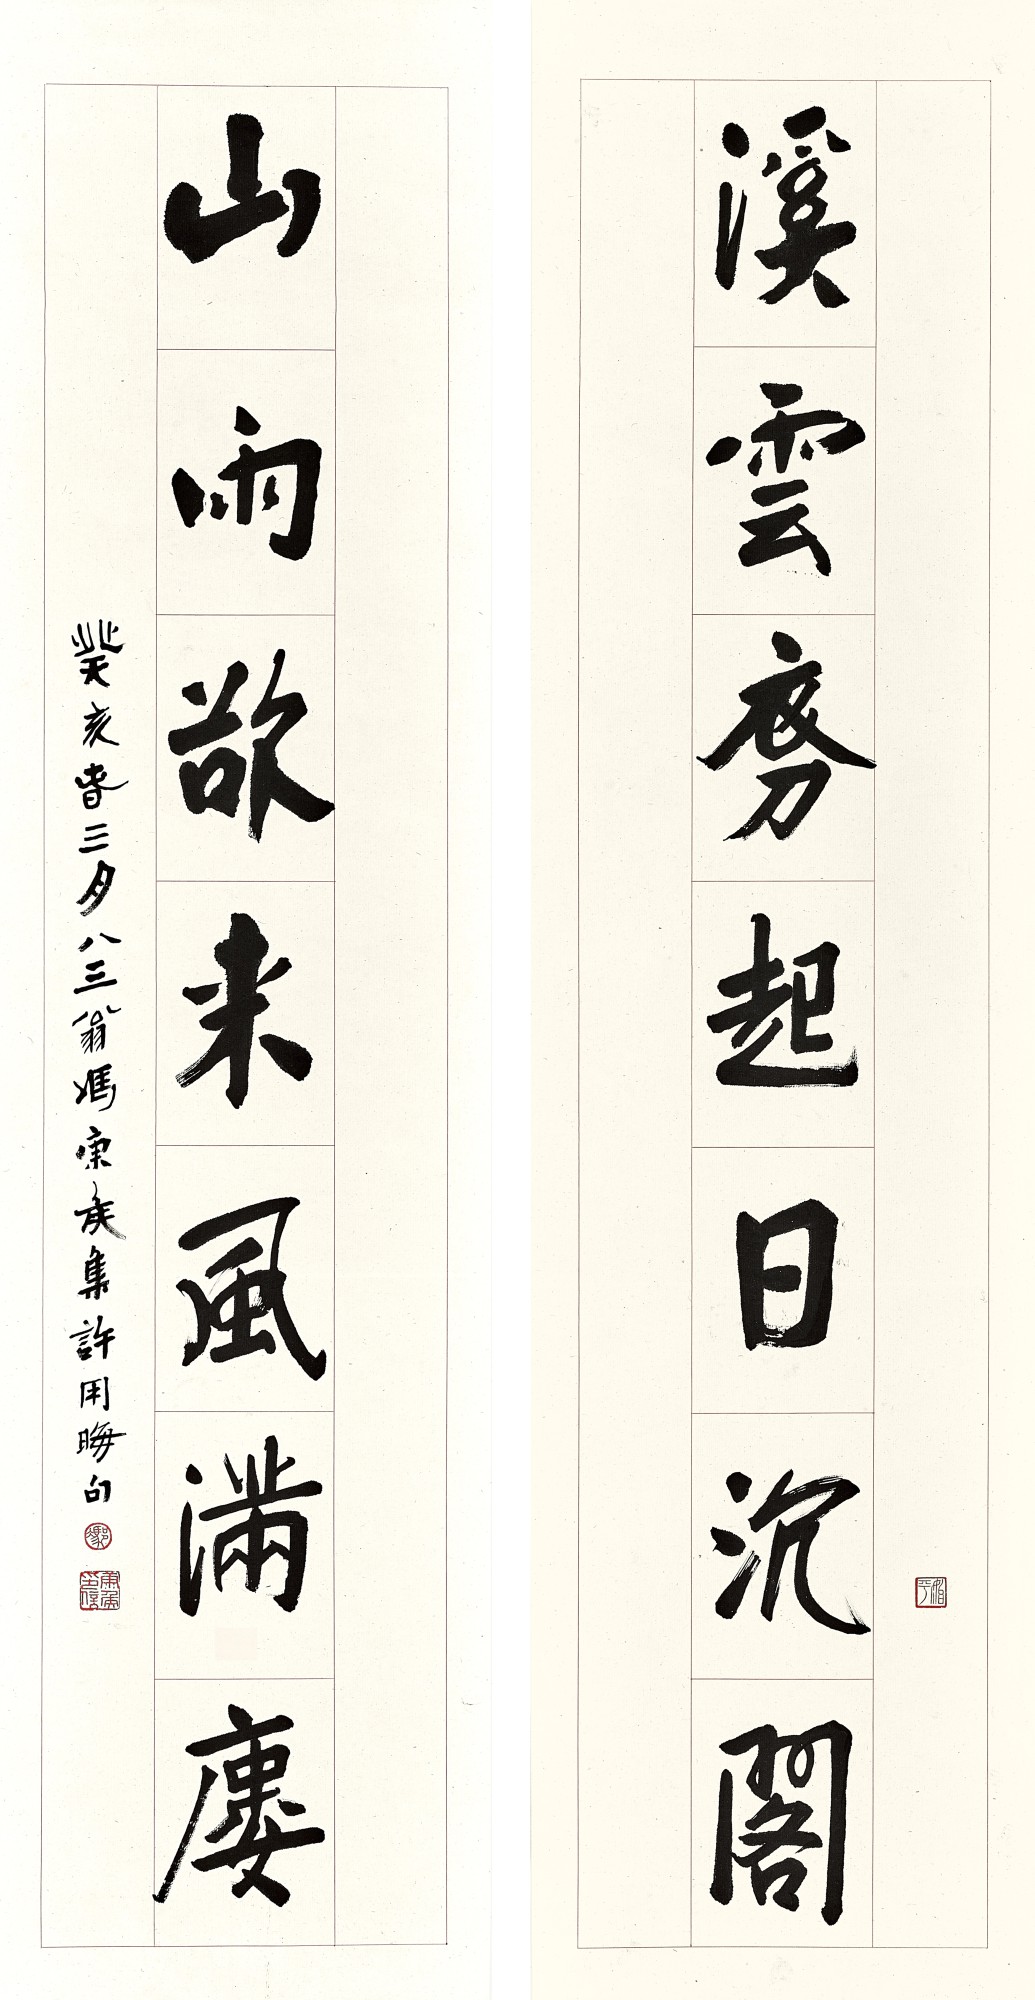 溪雲初起日沉閣
山雨欲来風滿廔
癸亥春三月八三翁馮康矦集許用晦句